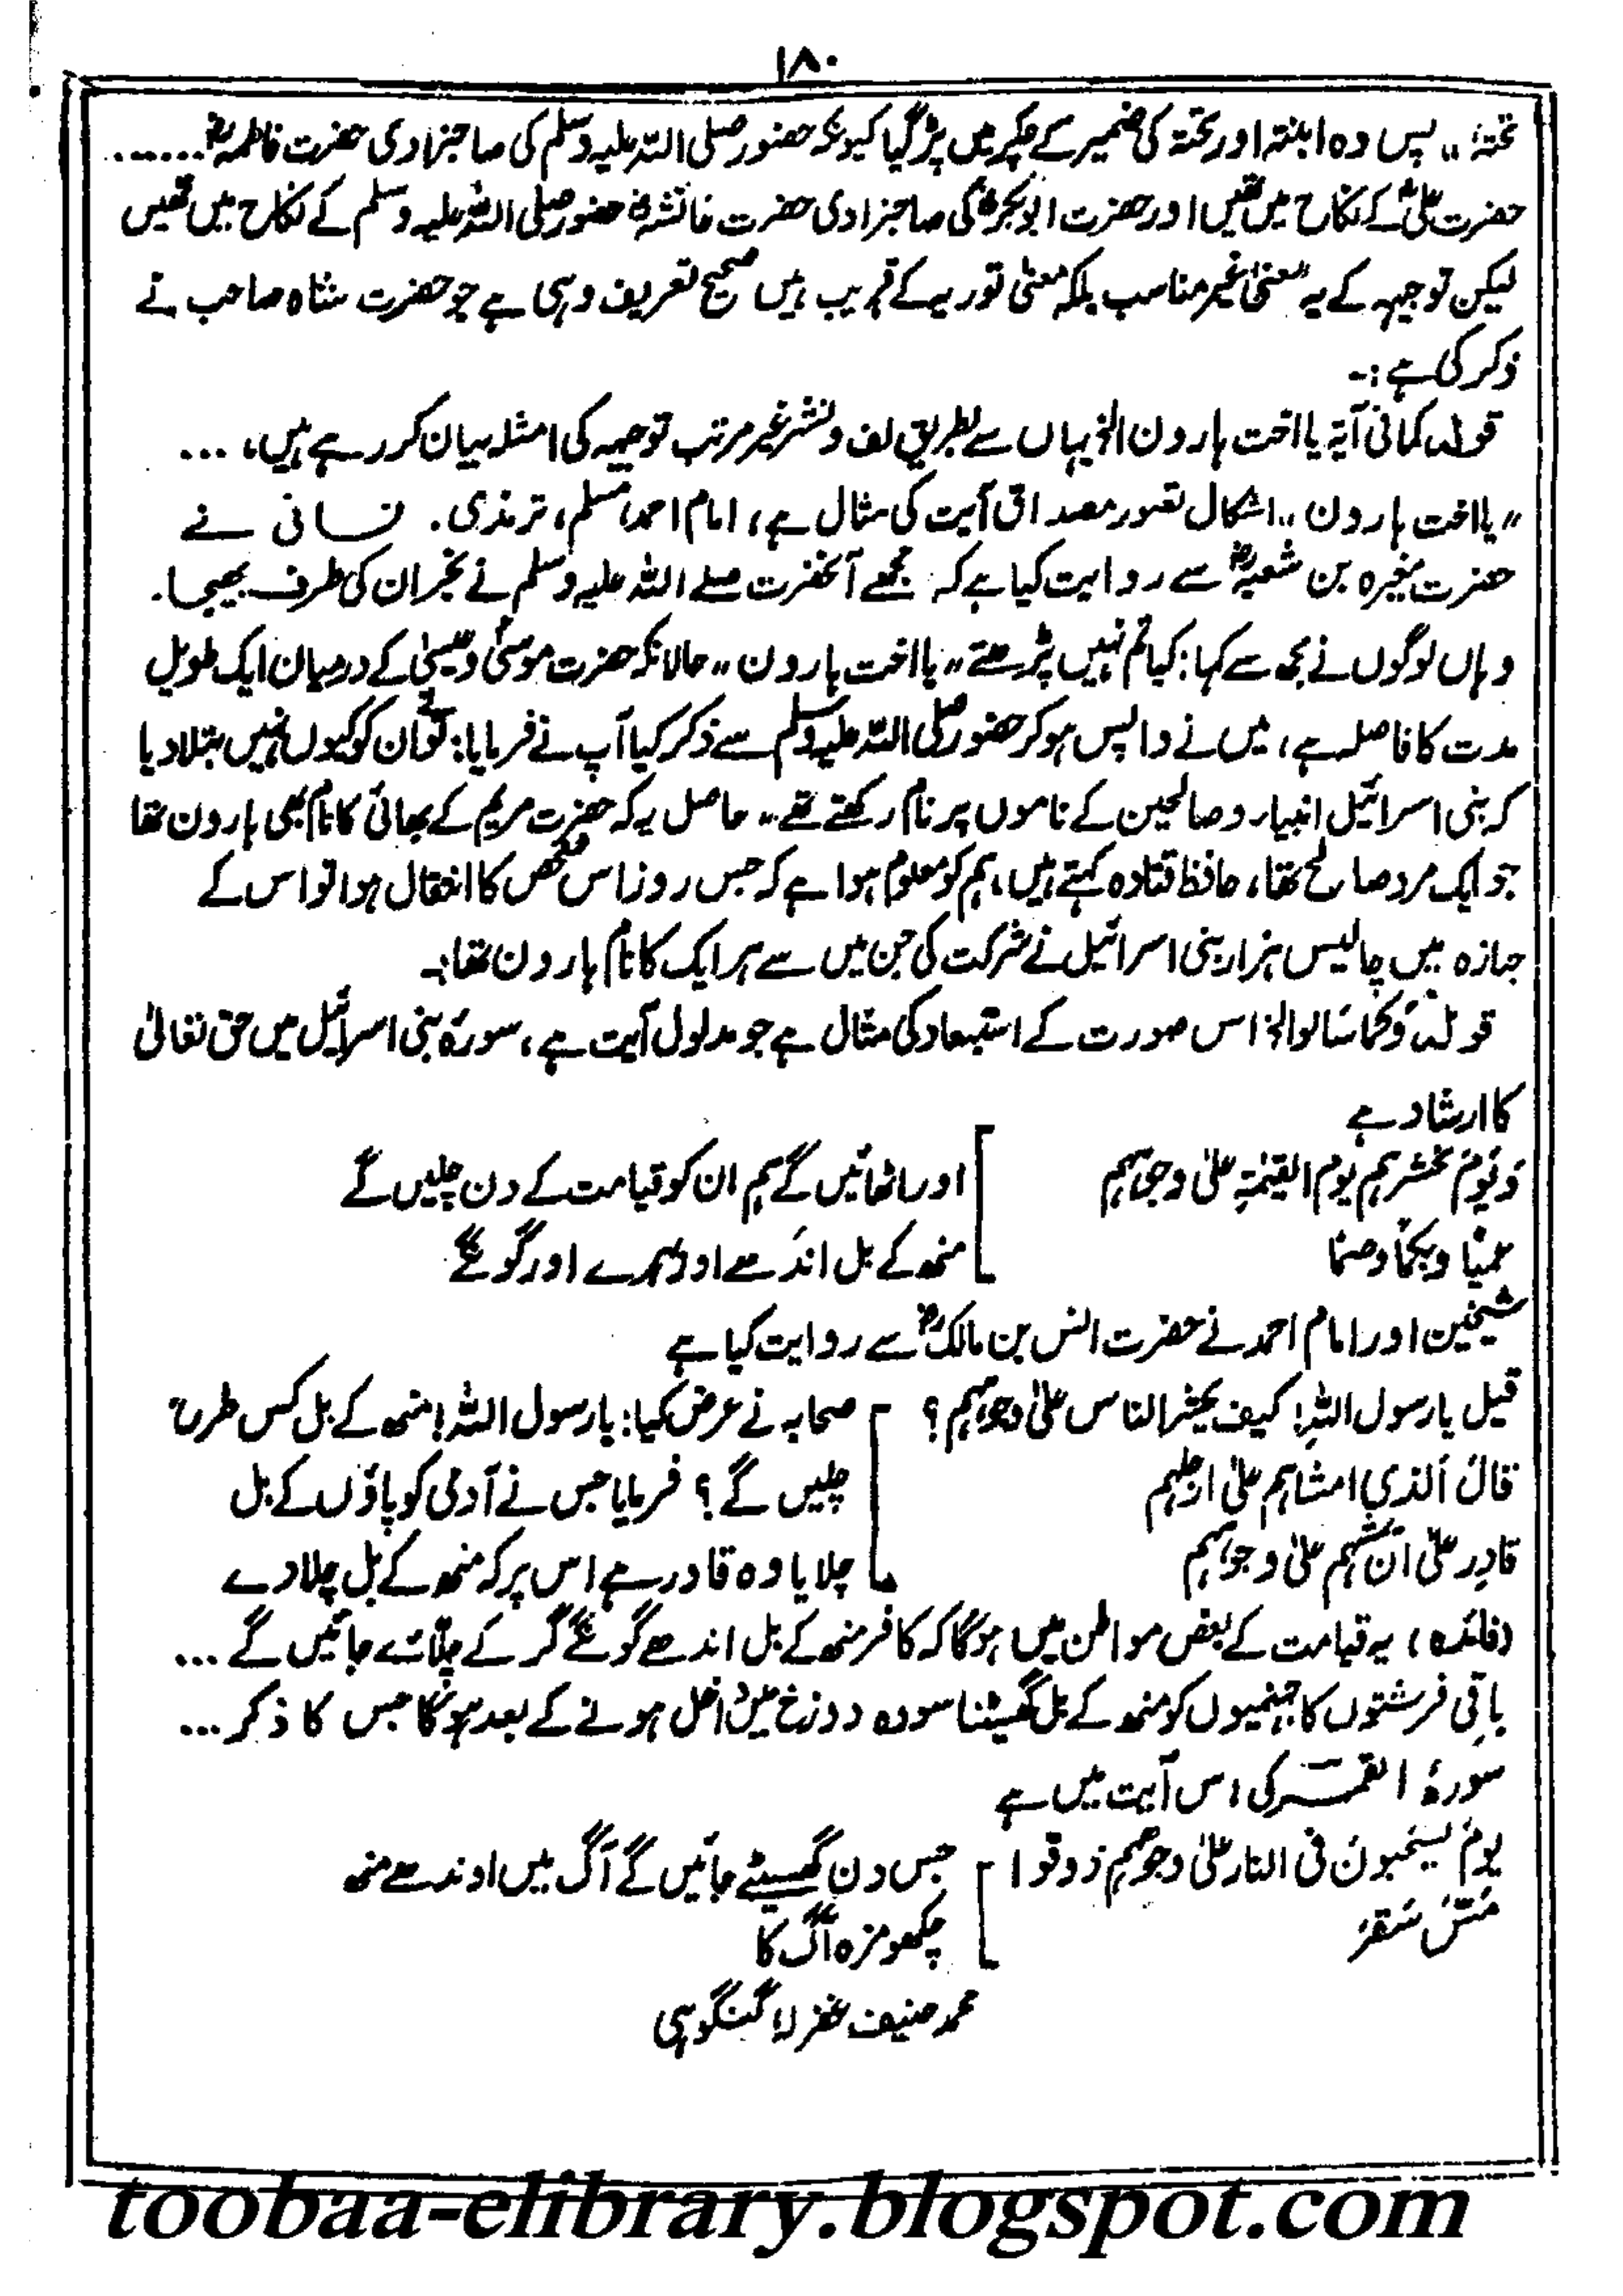 ۱۸۰
تحتہٗ،، پس وہ ابنتہ اور تحتہ کی ضمیر کے چکر میں پڑ گیا کیونکہ حضور صلی اللہ علیہ وسلم کی صاحبزادی حضرت فاطمہؓ ......
حضرت علیؓ کے نکاح میں تھیں اور حضرت ابوبکرؓ کی صاحبزادی حضرت عائشہؓ حضور صلی اللہ علیہ وسلم کے نکاح میں تھیں
لیکن توجیہہ کے یہ معنیٰ غیر مناسب بلکہ معنیٰ توریہ کے قریب ہیں صحیح تعریف وہی ہے جو حضرت شاہ صاحب نے
ذکر کی ہے :۔
قولہ کمافی آیۃ یااخت ہارون الخ یہاں سے بطریق لف و نشر غیر مرتب توجیہہ کی امثلہ بیان کر رہے ہیں، ...
،،یااخت ہارون،، اشکال تصور مصداق آیت کی مثال ہے، امام احمد، مسلم، ترمذی. نسائی نے
حضرت مغیرہ بن شعبہؓ سے روایت کیا ہے کہ مجھے آنحضرت صلے اللہ علیہ وسلم نے نجران کی طرف بھیجا.
وہاں لوگوں نے مجھ سے کہا: کیا تم نہیں پڑھتے ،،یااخت ہارون،، حالانکہ حضرت موسیٰ و عیسیٰ کے درمیان ایک طویل
مدت کا فاصلہ ہے، میں نے واپس ہو کر حضور صلی اللہ علیہ وسلم سے ذکر کیا آپ نے فرمایا: تونے ان کو کیوں نہیں بتلادیا
کہ بنی اسرائیل انبیاء و صالحین کے ناموں پر نام رکھتے تھے،، حاصل یہ کہ حضرت مریم کے بھائی کا نام بھی ہارون تھا
جو ایک مرد صالح تھا، حافظ قتادہ کہتے ہیں، ہم کو معلوم ہوا ہے کہ جس روز اس شخص کا انتقال ہوا تو اس کے
جنازہ میں چالیس ہزار بنی اسرائیل نے شرکت کی جن میں سے ہر ایک کا نام ہارون تھا :۔
قولہٗ وکما سَالوا الخ اس صورت کے استبعاد کی مثال ہے جو مدلول آیت ہے، سورۂ بنی اسرائیل میں حق تعالیٰ
کا ارشاد ہے
وَیَوْمَ نحشرہم یوم القیٰمۃِ علیٰ وجوہہم
عمیًا وبکمًا وصمًا
اور اٹھائیں گے ہم ان کو قیامت کے دن چلیں گے
منھ کے بل اندھے اور بہرے اور گونگے
شیخین اور امام احمد نے حضرت انس بن مالکؓ سے روایت کیا ہے
قیل یا رسول اللہِ! کیف یحشر الناس علیٰ وجوہہم؟
قالَ الذی امشاہم علیٰ ارجلہم
قادِر علیٰ ان یمشیہم علیٰ وجوہہم
صحابہ نے عرض کیا: یا رسول اللہ! منھ کے بل کس طرح
چلیں گے؟ فرمایا جس نے آدمی کو پاؤں کے بل
چلایا وہ قادر ہے اس پر کہ منھ کے بل چلادے
(فائدہ) یہ قیامت کے بعض مواطن میں ہوگا کہ کافر منھ کے بل اندھے گونگے کر کے چلائے جائیں گے ...
باقی فرشتوں کا جہنمیوں کو منھ کے بل گھسیٹنا سو وہ دوزخ میں داخل ہونے کے بعد ہوگا جس کا ذکر ...
سورۂ القمر کی اس آیت میں ہے
یومَ یسحبونَ فی النار علیٰ وجوہہم ذوقوا
مَسَّ سَقَرَ
جس دن گھسیٹے جائیں گے آگ میں اوندھے منھ
چکھو مزہ آگ کا
محمد حنیف غفرلہٗ گنگوہی
toobaa-elibrary.blogspot.com